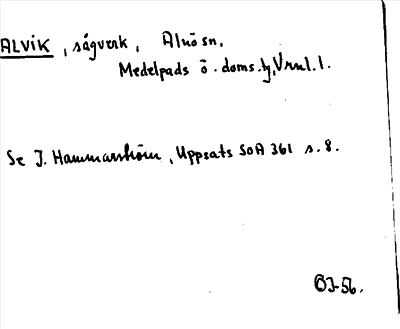 ALVIK, sågverk, Alnö sn,
Medelpads ö. doms.tg, Vrnl. l.
Se J. Hammarström, Uppsats SOA 361 s. 8.
BJ-56.